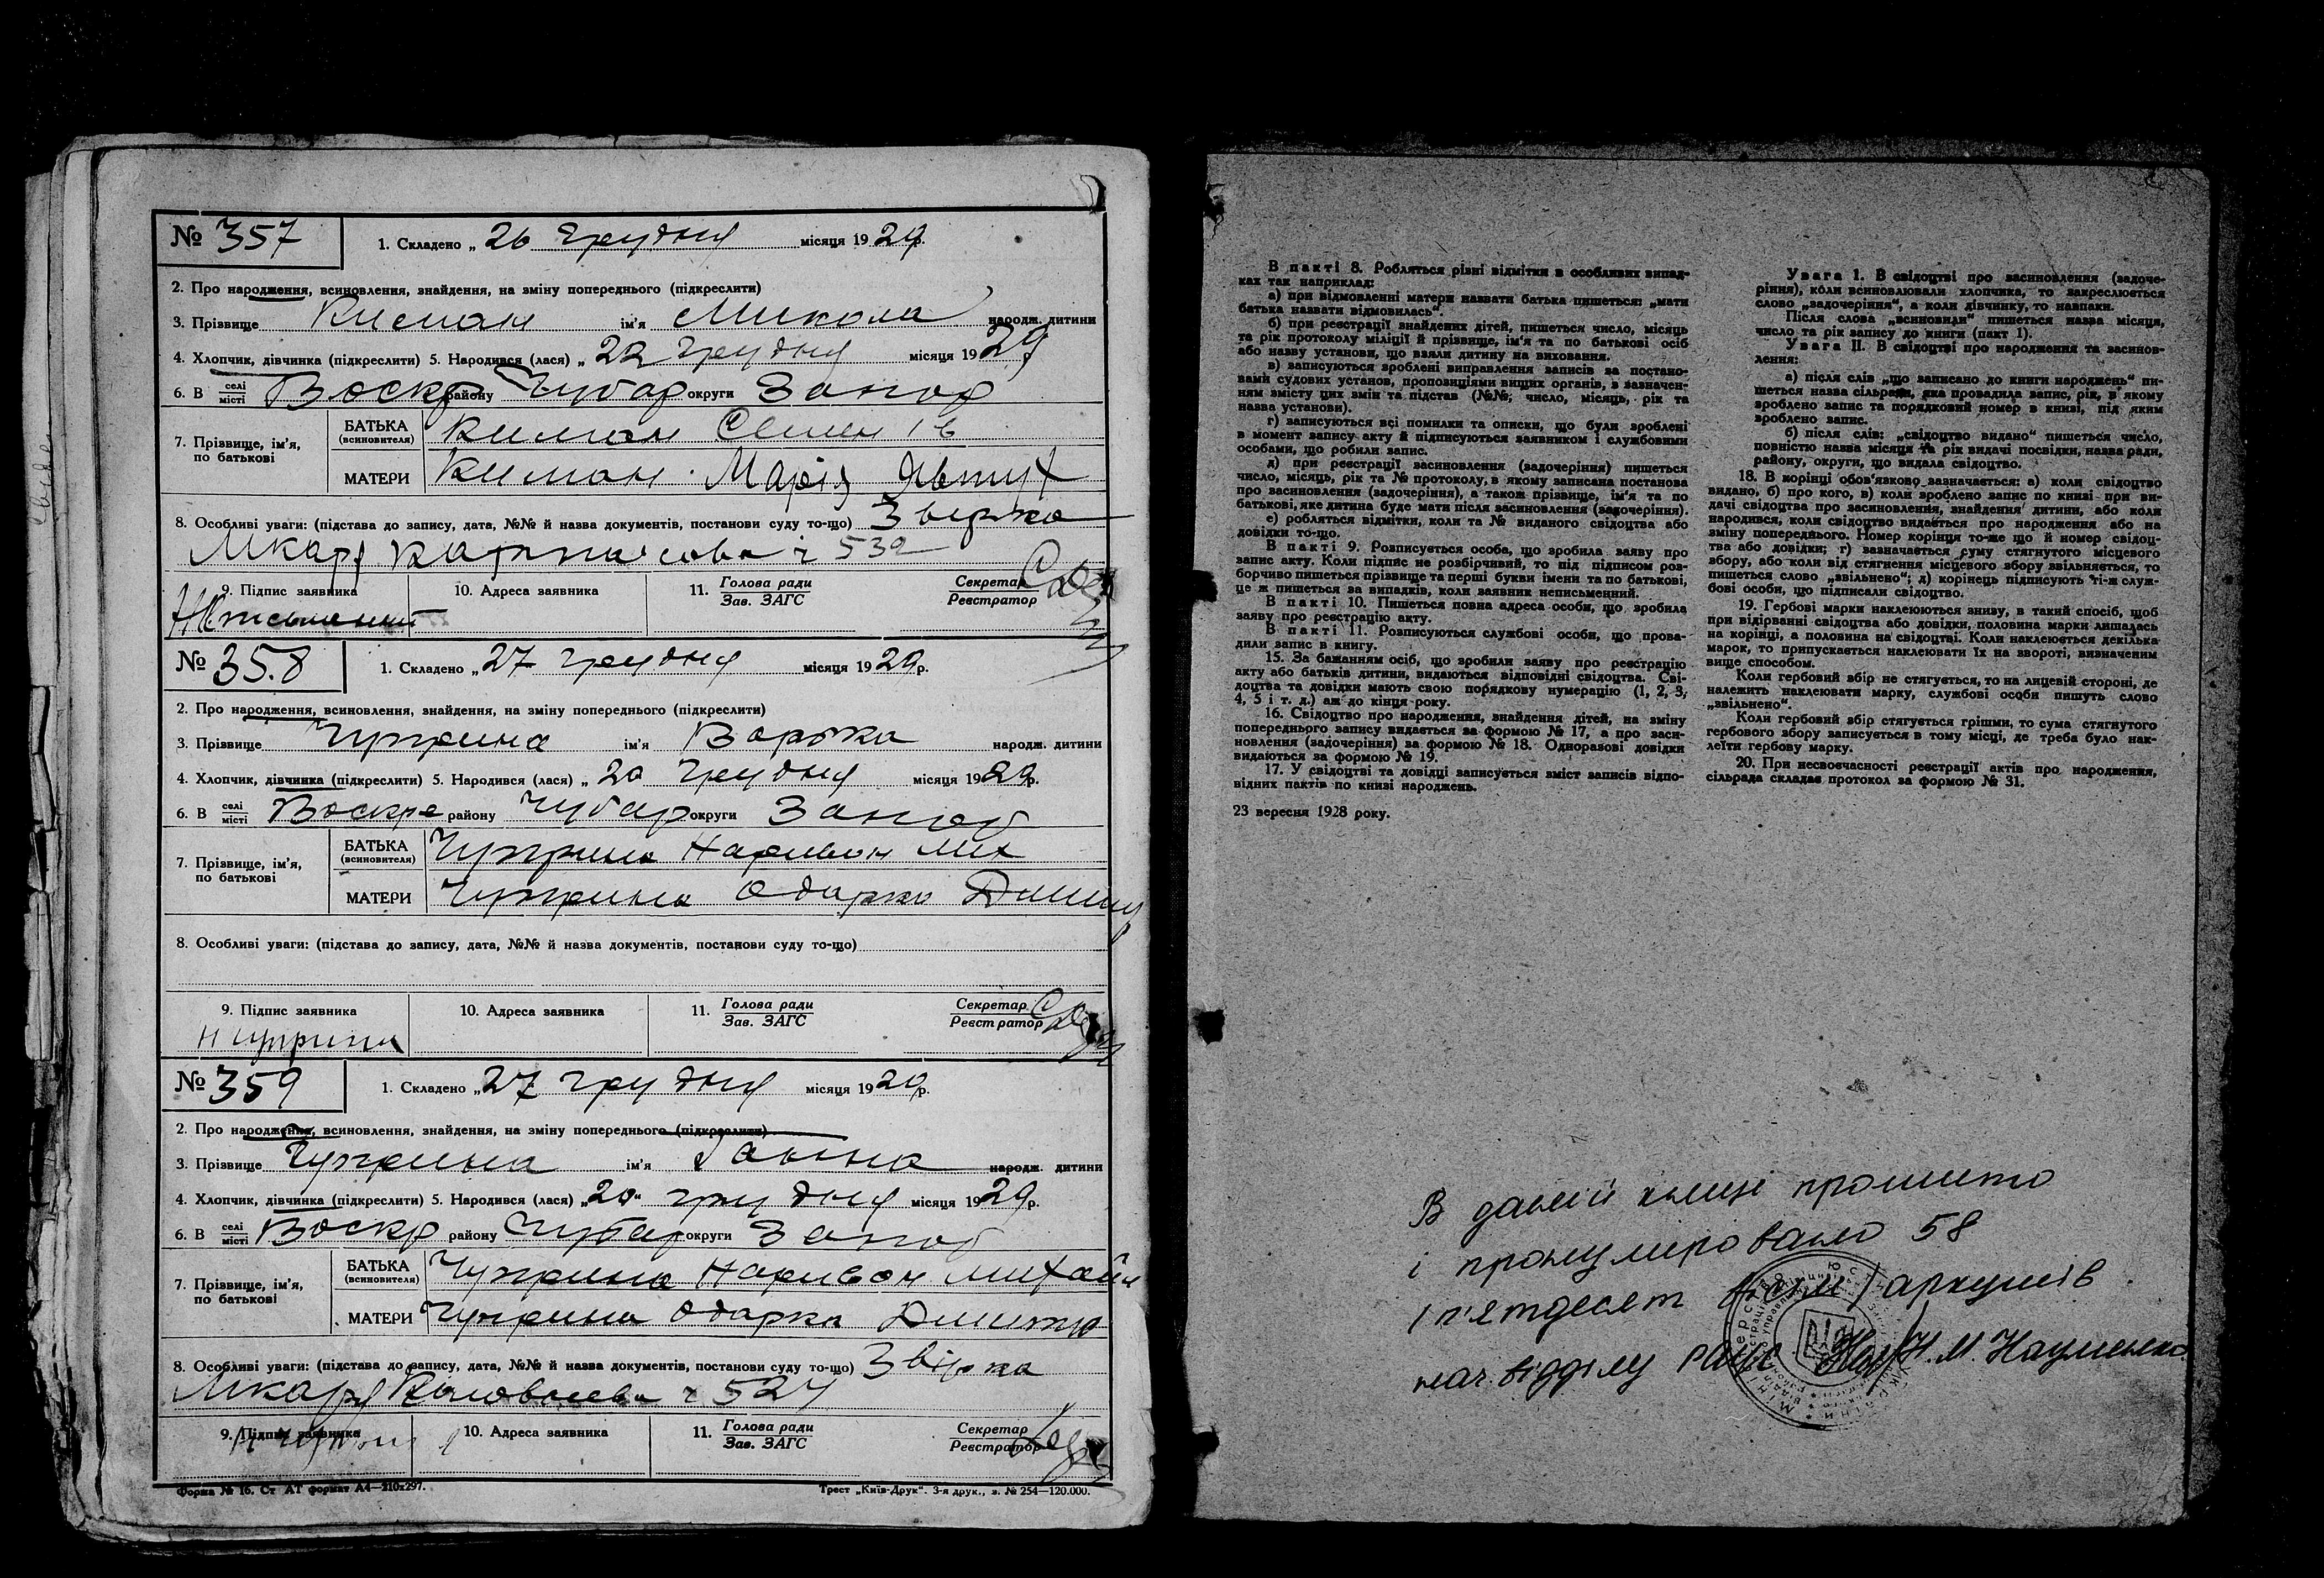 № 357
1. Складено „ 26 грудня місяця 1929р.
2. Про народження, всиновлення, знайдення, на зміну попереднього (підкреслити)
3. Прізвище Кисман ім'я Микола народж. дитини
4. Хлопчик, дівчинка (підкреслити) 5. Народився (лася) „ 22 грудня місяця 1929
6. В селі місті Воскр району Чубар округи Запор
7. Прізвище, ім'я, по батькові
БАТЬКА (всиновителя) Семен Ів
МАТЕРИ Марія Явтух
8. Особливі уваги: (підстава до запису, дата, №№ й назва документів, постанови суду то-що) Звірка
532
9. Підпис заявника
10. Адреса заявника
11. Голова ради Зав. ЗАГС
Секретар Реєстратор
Неписьменний
№ 358
1. Складено „ 27 грудня місяця 1929р.
2. Про народження, всиновлення, знайдення, на зміну попереднього (підкреслити)
3. Прізвище Чуприна ім'я Варька народж. дитини
4. Хлопчик, дівчинка (підкреслити) 5. Народився (лася) „ 20 грудня місяця 1929р.
6. В селі місті Воскре району Чубар округи Запор
7. Прізвище, ім'я, по батькові
БАТЬКА (всиновителя) Чуприна Наривон Мих
МАТЕРИ Чуприна Одарка Димитр
8. Особливі уваги: (підстава до запису, дата, №№ й назва документів, постанови суду то-що)
9. Підпис заявника
10. Адреса заявника
11. Голова ради Зав. ЗАГС
Секретар Реєстратор
Н Чуприна
№ 359
1. Складено „ 27 грудня місяця 1929р.
2. Про народження, всиновлення, знайдення, на зміну попереднього (підкреслити)
3. Прізвище Чуприна ім'я Ганна народж. дитини
4. Хлопчик, дівчинка (підкреслити) 5. Народився (лася) „ 20 грудня місяця 1929р.
6. В селі місті Воскр району Чубар округи Запор
7. Прізвище, ім'я, по батькові
БАТЬКА (всиновителя) Чуприна Наривон Михайл
МАТЕРИ Чуприна Одарка Димитр
8. Особливі уваги: (підстава до запису, дата, №№ й назва документів, постанови суду то-що) Звірка
524
9. Підпис заявника
10. Адреса заявника
11. Голова ради Зав. ЗАГС
Секретар Реєстратор
Форма № 16. Ст АТ формат А4—210х297.
Трест „Київ-Друк". 3-я друк., з. № 254—120.000.
В пакті 8. Робляться різні відмітки в особливих випад-
ках так наприклад:
а) при відмовленні матери назвати батька пишеться: „мати
батька назвати відмовилась".
б) при реєстрації знайдених дітей, пишеться число, місяць
та рік протоколу міліції й прізвище, ім'я та по батькові осіб
або назву установи, що взяли дитину на виховання.
в) записуються зроблені виправлення записів за постано-
вами судових установ, проповиціями вищих органів, в зазначен-
ням змісту цих змін та підстав (№№; число, місяць, рік та
назва установи).
г) записуються всі помилки та описки, що були зроблені
в момент запису акту й підписуються заявником і службовими
особами, що робили запис.
д) при реєстрації засиновлення (задочеріння) пишеться
число, місяць, рік та № протоколу, в якому записана постанова
про засиновлення (задочеріння), а також прізвище, ім'я та по
батькові, яке дитина буде мати після засиновлення (задочеріння).
е) робляться відмітки, коли та № виданого свідоцтва або
довідки то-що.
В пакті 9. Розписується особа, що зробила заяву про
запис акту. Коли підпис не розбірчивий, то під підписом роз-
борчиво пишеться прізвище та перші букви імени та по батькові,
це ж пишеться за випадків, коли заявник неписьменний.
В пакті 10. Пишеться повна адреса особи, що зробила
заяву про реєстрацію акту.
В пакті 11. Розписуються службові особи, що прова-
дили запис в книгу.
15. За бажанням осіб, що зробили заяву про реєстрацію
акту або батьків дитини, видаються відповідні свідоцтва. Сві-
доцтва та довідки мають свою порядкову нумерацію (1, 2, 3,
4, 5 і т. д.) аж до кінця року.
16. Свідоцтво про народження, знайдення дітей, на зміну
попереднього запису видається за формою № 17, а про заси-
новлення (задочеріння) за формою № 18. Одноразові довідки
видаються за формою № 19.
17. У свідоцтві та довідці записується зміст записів відпо-
відних пактів по книзі народжень.
23 вересня 1928 року.
Увага І. В свідоцтві про засиновлення (задоче-
ріння), коли всиновлювали хлопчика, то закреслюється
слово „задочеріння", а коли дівчинку, то навпаки.
Після слова „всиновили" пишеться назва місяця,
число та рік запису до книги (пакт 1).
Увага ІІ. В свідоцтві про народження та засинов-
лення:
а) після слів „що записано до книги народжень" пи-
шеться назва сільради, яка провадила запис, рік, в якому
зроблено запис та порядковий номер в книзі, під яким
зроблено запис.
б) після слів: „свідоцтво видано" пишеться число,
повністю назва місяця та рік видачі посвідки, назва ради,
району, округи, що видала свідоцтво.
18. В корінці обов'язково зазначається: а) коли свідоцтво
видано, б) про кого, в) коли зроблено запис по книзі при ви-
дачі свідоцтва про засиновлення, знайдення дитини, або коли
народився, коли свідоцтво видається про народження або на
зміну попереднього. Номер корінця то-же що й номер свідоц-
тва або довідки; г) зазначається суму стягнутого місцевого
збору, або коли від стягнення місцевого збору звільняється, то
пишеться слово „звільнено"; д) корінець підписують ті-ж служ-
бові особи, що підписали свідоцтво.
19. Гербові марки наклеюються знизу, в такий спосіб, щоб
при відірванні свідоцтва або довідки, половина марки лишалась
на корінці, а половина на свідоцтві. Коли наклеюється декілька
марок, то припускається наклеювати їх на звороті, визначеним
вище способом.
Коли гербовий збір не стягується, то на лицевій стороні, де
належить наклеювати марку, службові особи пишуть слово
„звільнено".
Коли гербовий збір стягується грішми, то сума стягнутого
гербового збору записується в тому місці, де треба було нак-
леїти гербову марку.
20. При несвоєчасності реєстрації актів про народження,
сільрада складає протокол за формою № 31.
В даній книзі прошито
і пронуміровано 58
(п'ятдесят вісім) аркушів
нач. відділу РАЦС Н.М. Науменко